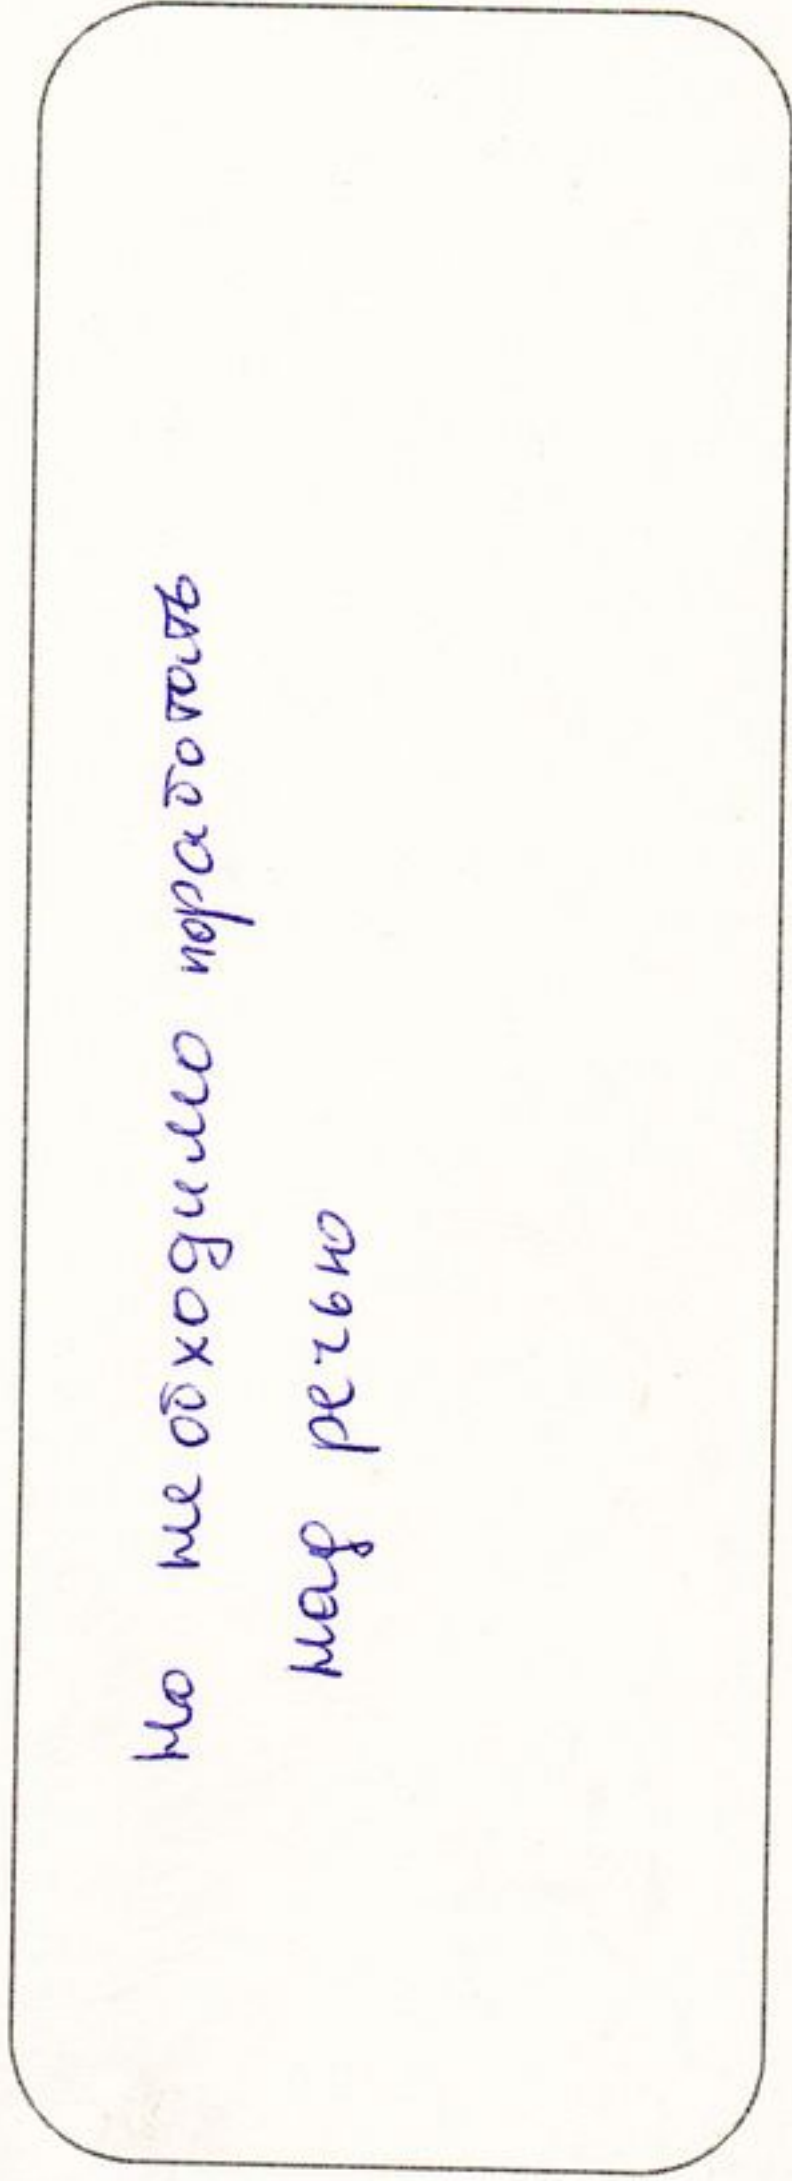 Но необходимо поработать
над речью